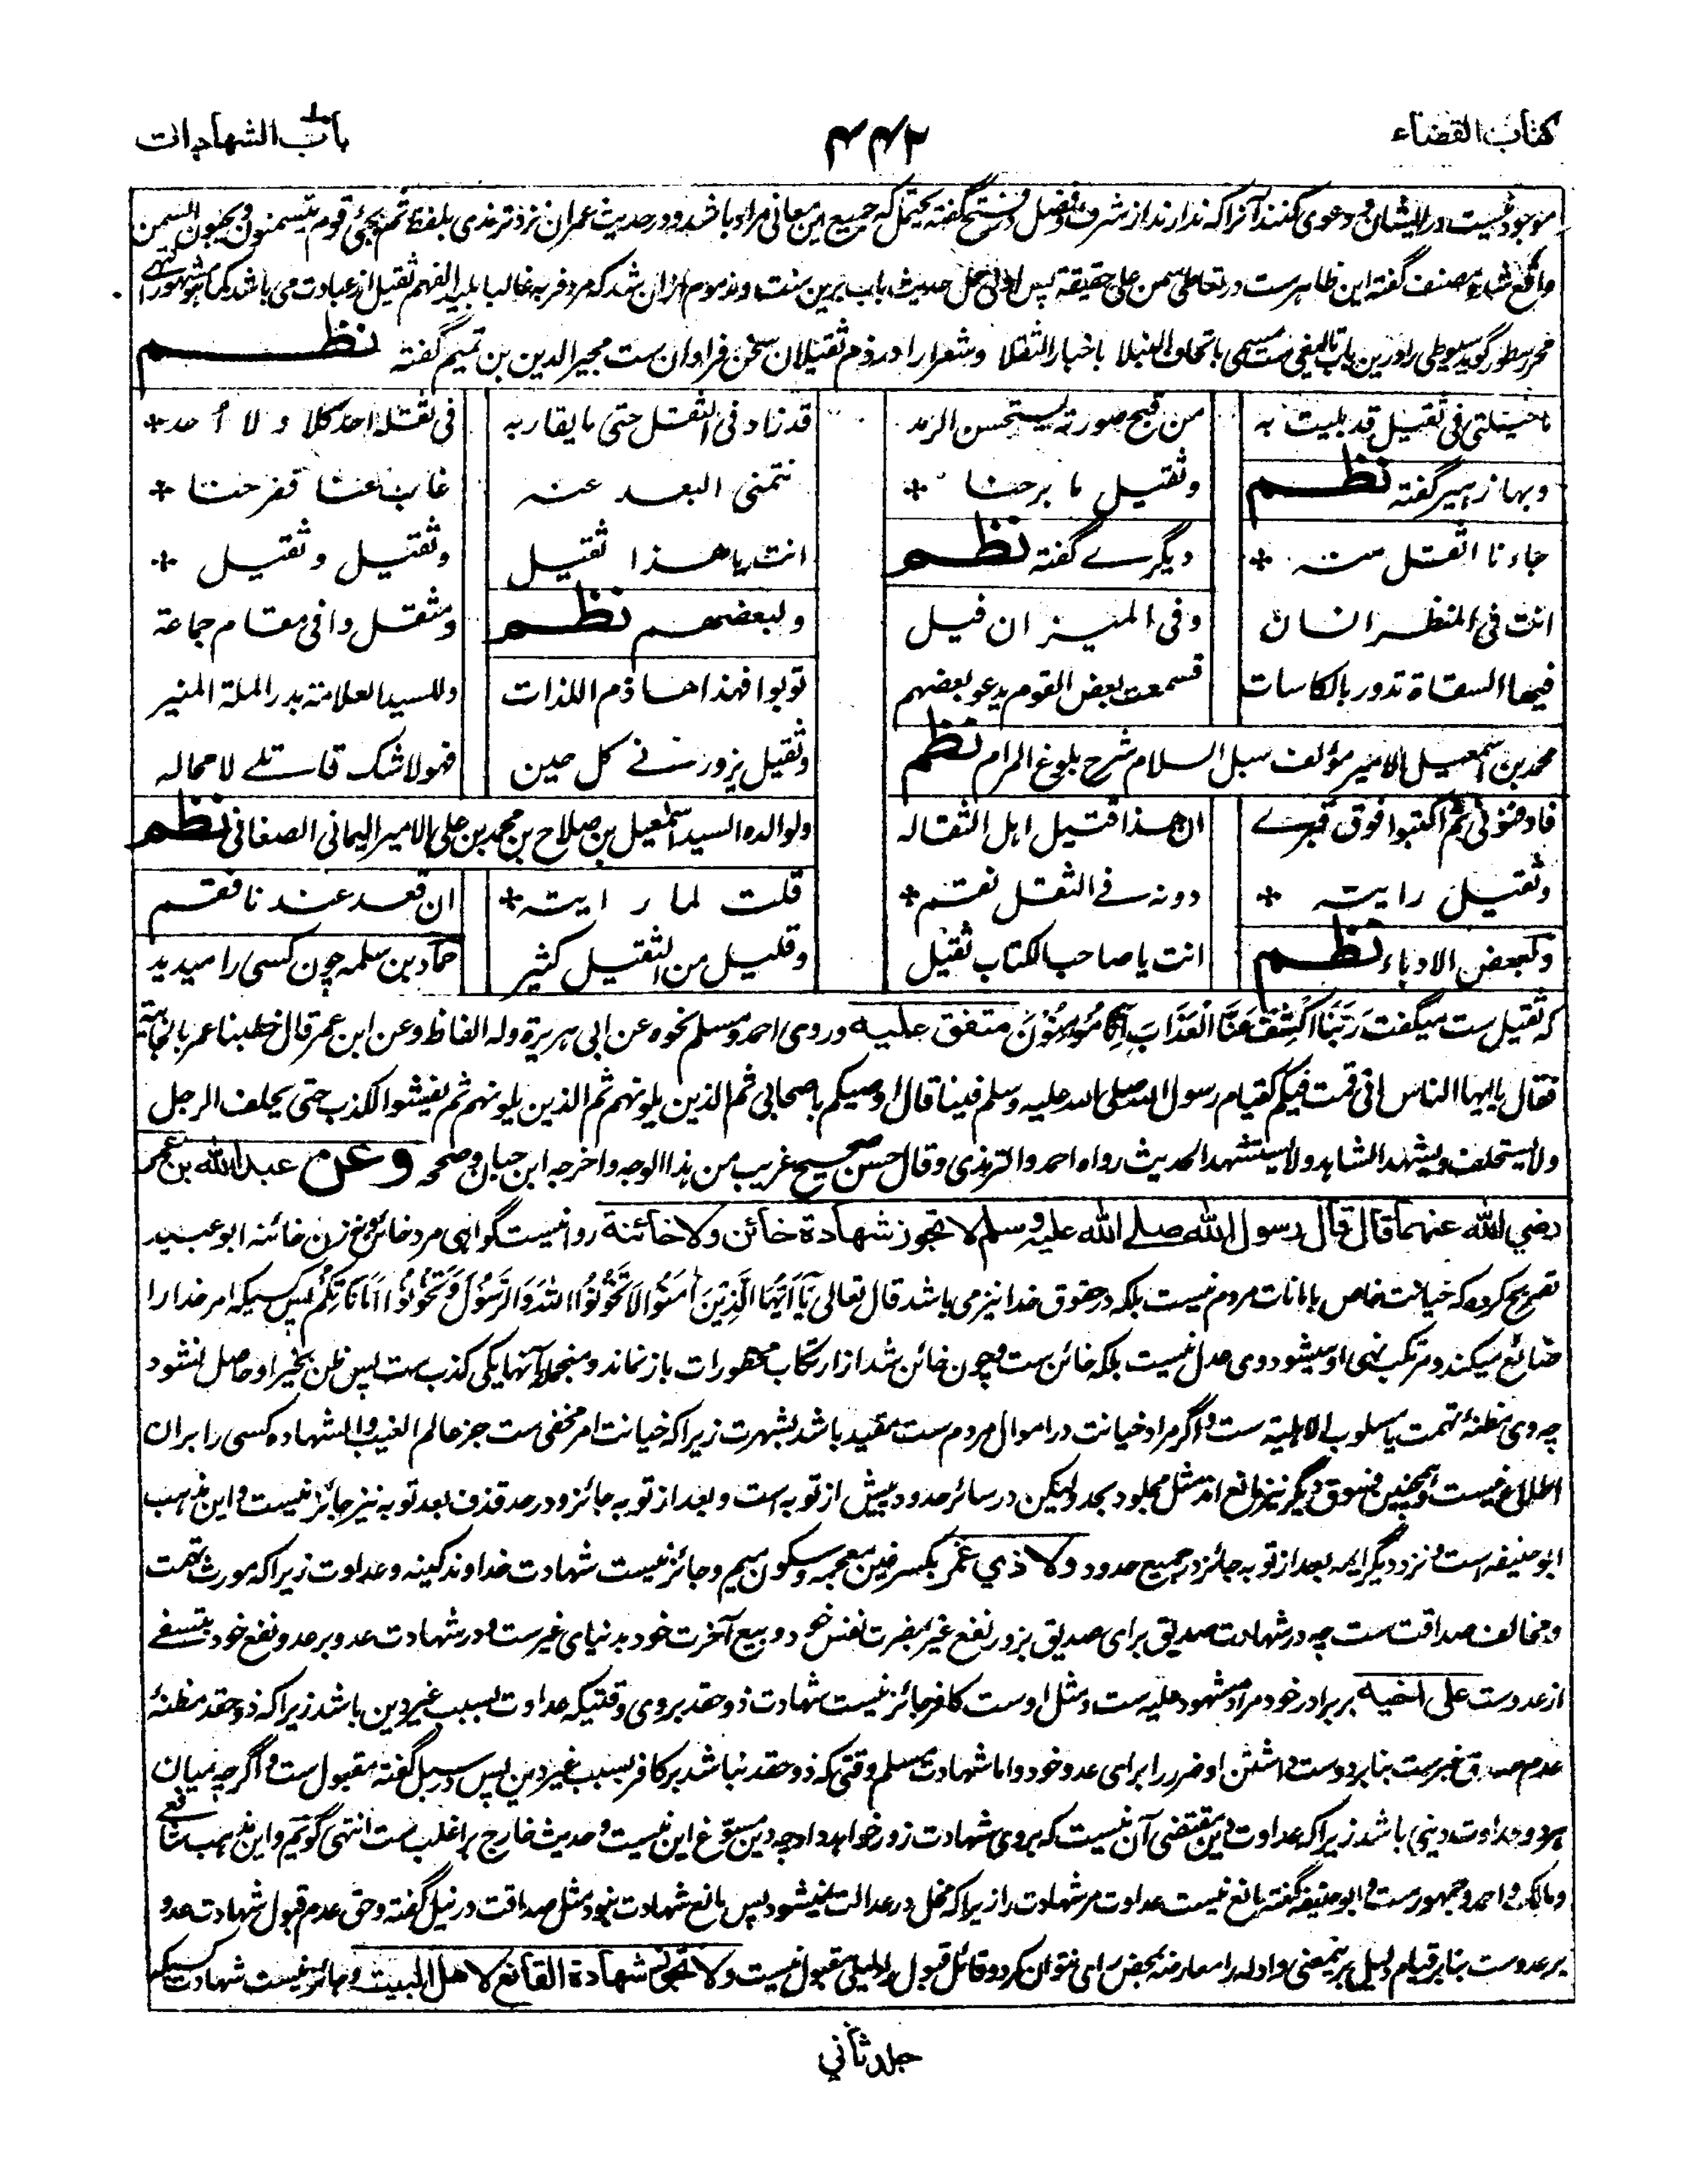 كتاب القضاء
۶۴۴
باب الشهادات
موجود نیست در ایشان و دعوی کنند آنرا که ندارند از شرف و فضل و در فتح گفته یحتمل که جمیع این معانی مراد باشد و در حدیث عمران نزد ترمذی بلفظ ثم یجیئ قوم یتسمنون ویحبون السمن
واقع شده مصنف گفته این ظاهرست در تعاطی سمن علی حقیقة پس اولی حمل حدیث باب برین ست و مذموم ازان شد که مرد فربه غالبا بلید الفهم ثقیل از عبادت می باشد کما هو مشهور انتهی
محرر سطور گوید سیوطی را درین باب تالیفی ست مسمی باتحاف النبلا باخبار الثقلا و شعرا را در ذم ثقیلان سخن فراوان ست مجیر الدین بن تمیم گفته نظم
یا حیلتی فی ثقیل قد بلیت به
من قبح صورته یستحسن الرمد
قد زاد فی الثقل حتی ما یقاربه
فی ثقله احد کلا ولا أحد *
وبها زهیر گفته نظم
وثقیل ما برحنا *
نتمنی البعد عنه
غاب عنا ففرحنا *
جاءنا اثقل منه *
دیگرے گفته نظم
انت یا هذا ثقیل
وثقیل وثقیل *
انت فی المنظر انسان
وفی المیزان فیل
ولبعضهم نظم
ومثقل وافی مقام جماعة
فیها السقاة تدور بالکاسات
فسمعت بعض القوم یدعو بعضهم
توبوا فهذا هاذم اللذات
وللسید العلامة بدر الملة المنیر
محمد بن اسمعیل الامیر مؤلف سبل السلام شرح بلوغ المرام نظم
وثقیل یزورنی کل حین
فهو لا شک قاتلے لا محاله
فادفنونی ثم اکتبوا فوق قبرے
ان هذا قتیل اهل الثقاله
ولوالده السید اسمعیل بن صلاح بن محمد بن علی الامیر الیمانی الصنعانی نظم
وثقیل رایته *
دونه فی الثقل نقم *
قلت لما رایته *
ان قعد عندنا فقم
ولبعض الادباء نظم
انت یا صاحب الکتاب ثقیل
وقلیل من الثقیل کثیر
حماد بن سلمه چون کسی را میدید
که ثقیل ست میگفت رَبَّنَا اكْشِفْ عَنَّا الْعَذَابَ إِنَّا مُؤْمِنُوْنَ متفق علیه وروی احمد ومسلم نحوه عن ابی هریرة وله الفاظ وعن ابن عمر قال خطبنا عمر بالجابیة
فقال یا ایها الناس انی قمت فیکم کقیام رسول الله صلی الله علیه وسلم فینا قال اوصیکم باصحابی ثم الذین یلونهم ثم الذین یلونهم ثم یفشو الکذب حتی یحلف الرجل
ولا یستحلف ویشهد الشاهد ولا یستشهد الحدیث رواه احمد والترمذی وقال حسن صحیح غریب من هذا الوجه واخرجه ابن حبان وصححه وعن عبد الله بن عمر
رضي الله عنهما قال قال رسول الله صلے الله علیه وسلم لا تجوز شهادة خائن ولا خائنة روا نیست گواهی مرد خائن و نه زن خائنه ابو عبید
تصریح کرده که خیانت خاص بامانات مردم نیست بلکه در حقوق خدا نیز می باشد قال تعالی يَآ أَيُّهَا الَّذِيْنَ آمَنُوْا لَا تَخُوْنُوا اللهَ وَالرَّسُوْلَ وَتَخُوْنُوْا أَمَانَاتِكُمْ پس کسیکه امر خدا را
ضائع میکند و مرتکب نهی او میشود وی عدل نیست بلکه خائن ست و چون خائن شد از ارتکاب محظورات باز نماند و منجمله آنها یکی کذب ست پس ظن بخیر او حاصل نشود
چه وی مظنۀ تهمت یا مسلوب الاهلیة ست و اگر مراد خیانت در اموال مردم ست مقید باشد بشهرت زیراکه خیانت امر مخفی ست جز عالم الغیب و الشهاده کسی را بران
اطلاع نیست و همچنین فسوق دیگر نیز مانع اند مثل مجلود بحد ولیکن در سائر حدود پیش از توبه است و بعد از توبه جائز و در حد قذف بعد توبه نیز جائز نیست و این مذهب
ابو حنیفه است و نزد دیگر ایمه بعد از توبه جائز در جمیع حدود ولا ذي غمر بکسر غین معجمه و سکون میم و جائز نیست شهادت خداوند کینه و عداوت زیراکه مورث تهمت
و مخالف صداقت ست چه در شهادت صدیق برای صدیق بزور نفع غیر بمضرت نفس خود و بیع آخرت خود بدنیای غیرست و در شهادت عدو بر عدو نفع خود بتشفے
از عدوست علی اخیه بر برادر خود مراد مشهود علیه ست و مثل اوست کافر جائز نیست شهادت ذو حقد بر وی وقتیکه عداوت بسبب غیر دین باشد زیراکه ذو حقد مظنۀ
عدم صدق خبرست بنا بر دوست داشتن او ضرر را برای عدو خود و اما شهادت مسلم وقتی که ذو حقد نباشد بر کافر بسبب غیر دین پس در سبل گفته مقبول ست و اگر چه میان
هر دو عداوت دینی باشد زیراکه عداوت دین مقتضی آن نیست که بروی شهادت زور خواهد داد چه دین مسوّغ این نیست و حدیث خارج بر اغلب ست انتهی گویم و این مذهب شافعی
و مالک و احمد و جمهورست و ابو حنیفه گفته مانع نیست عداوت مر شهادت را زیراکه مخل در عدالت نمیشود پس مانع شهادت نبود مثل صداقت در نیل گفته و حق عدم قبول شهادت عدو
بر عدوست بنا بر قیام دلیل بر و ادله را معارضه بمحض رای نتوان کرد و قائل قبول را دلیلی مقبول نیست ولا تجوز شهادة القانع لاهل البیت و جائز نیست شهادت کسیکه
جلد ثاني